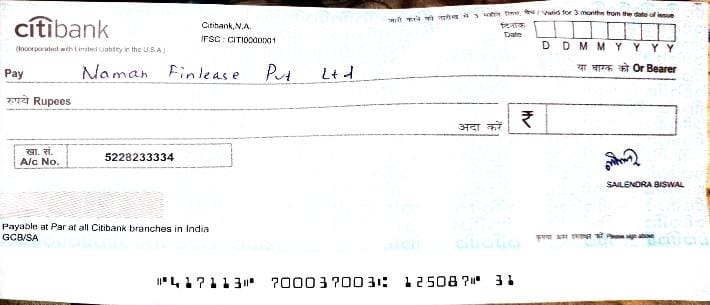 citibank
(Incorporated with Limited Liability in the U.S.A.)
Citibank,N.A.
IFSC : CITI0000001
जारी करने की तारीख से 3 महीने वैध / Valid for 3 months from the date of issue
दिनांक
Date
D D M M Y Y Y Y
Pay Naman Finlease Pvt Ltd
या धारक को Or Bearer
रुपये Rupees
अदा करें ₹
खा. सं.
A/c No. 5228233334
SAILENDRA BISWAL
Payable at Par at all Citibank branches in India
GCB/SA
कृपया ऊपर हस्ताक्षर करें Please sign above
⑈417113⑈ 700037003⑆ 125087⑈ 31